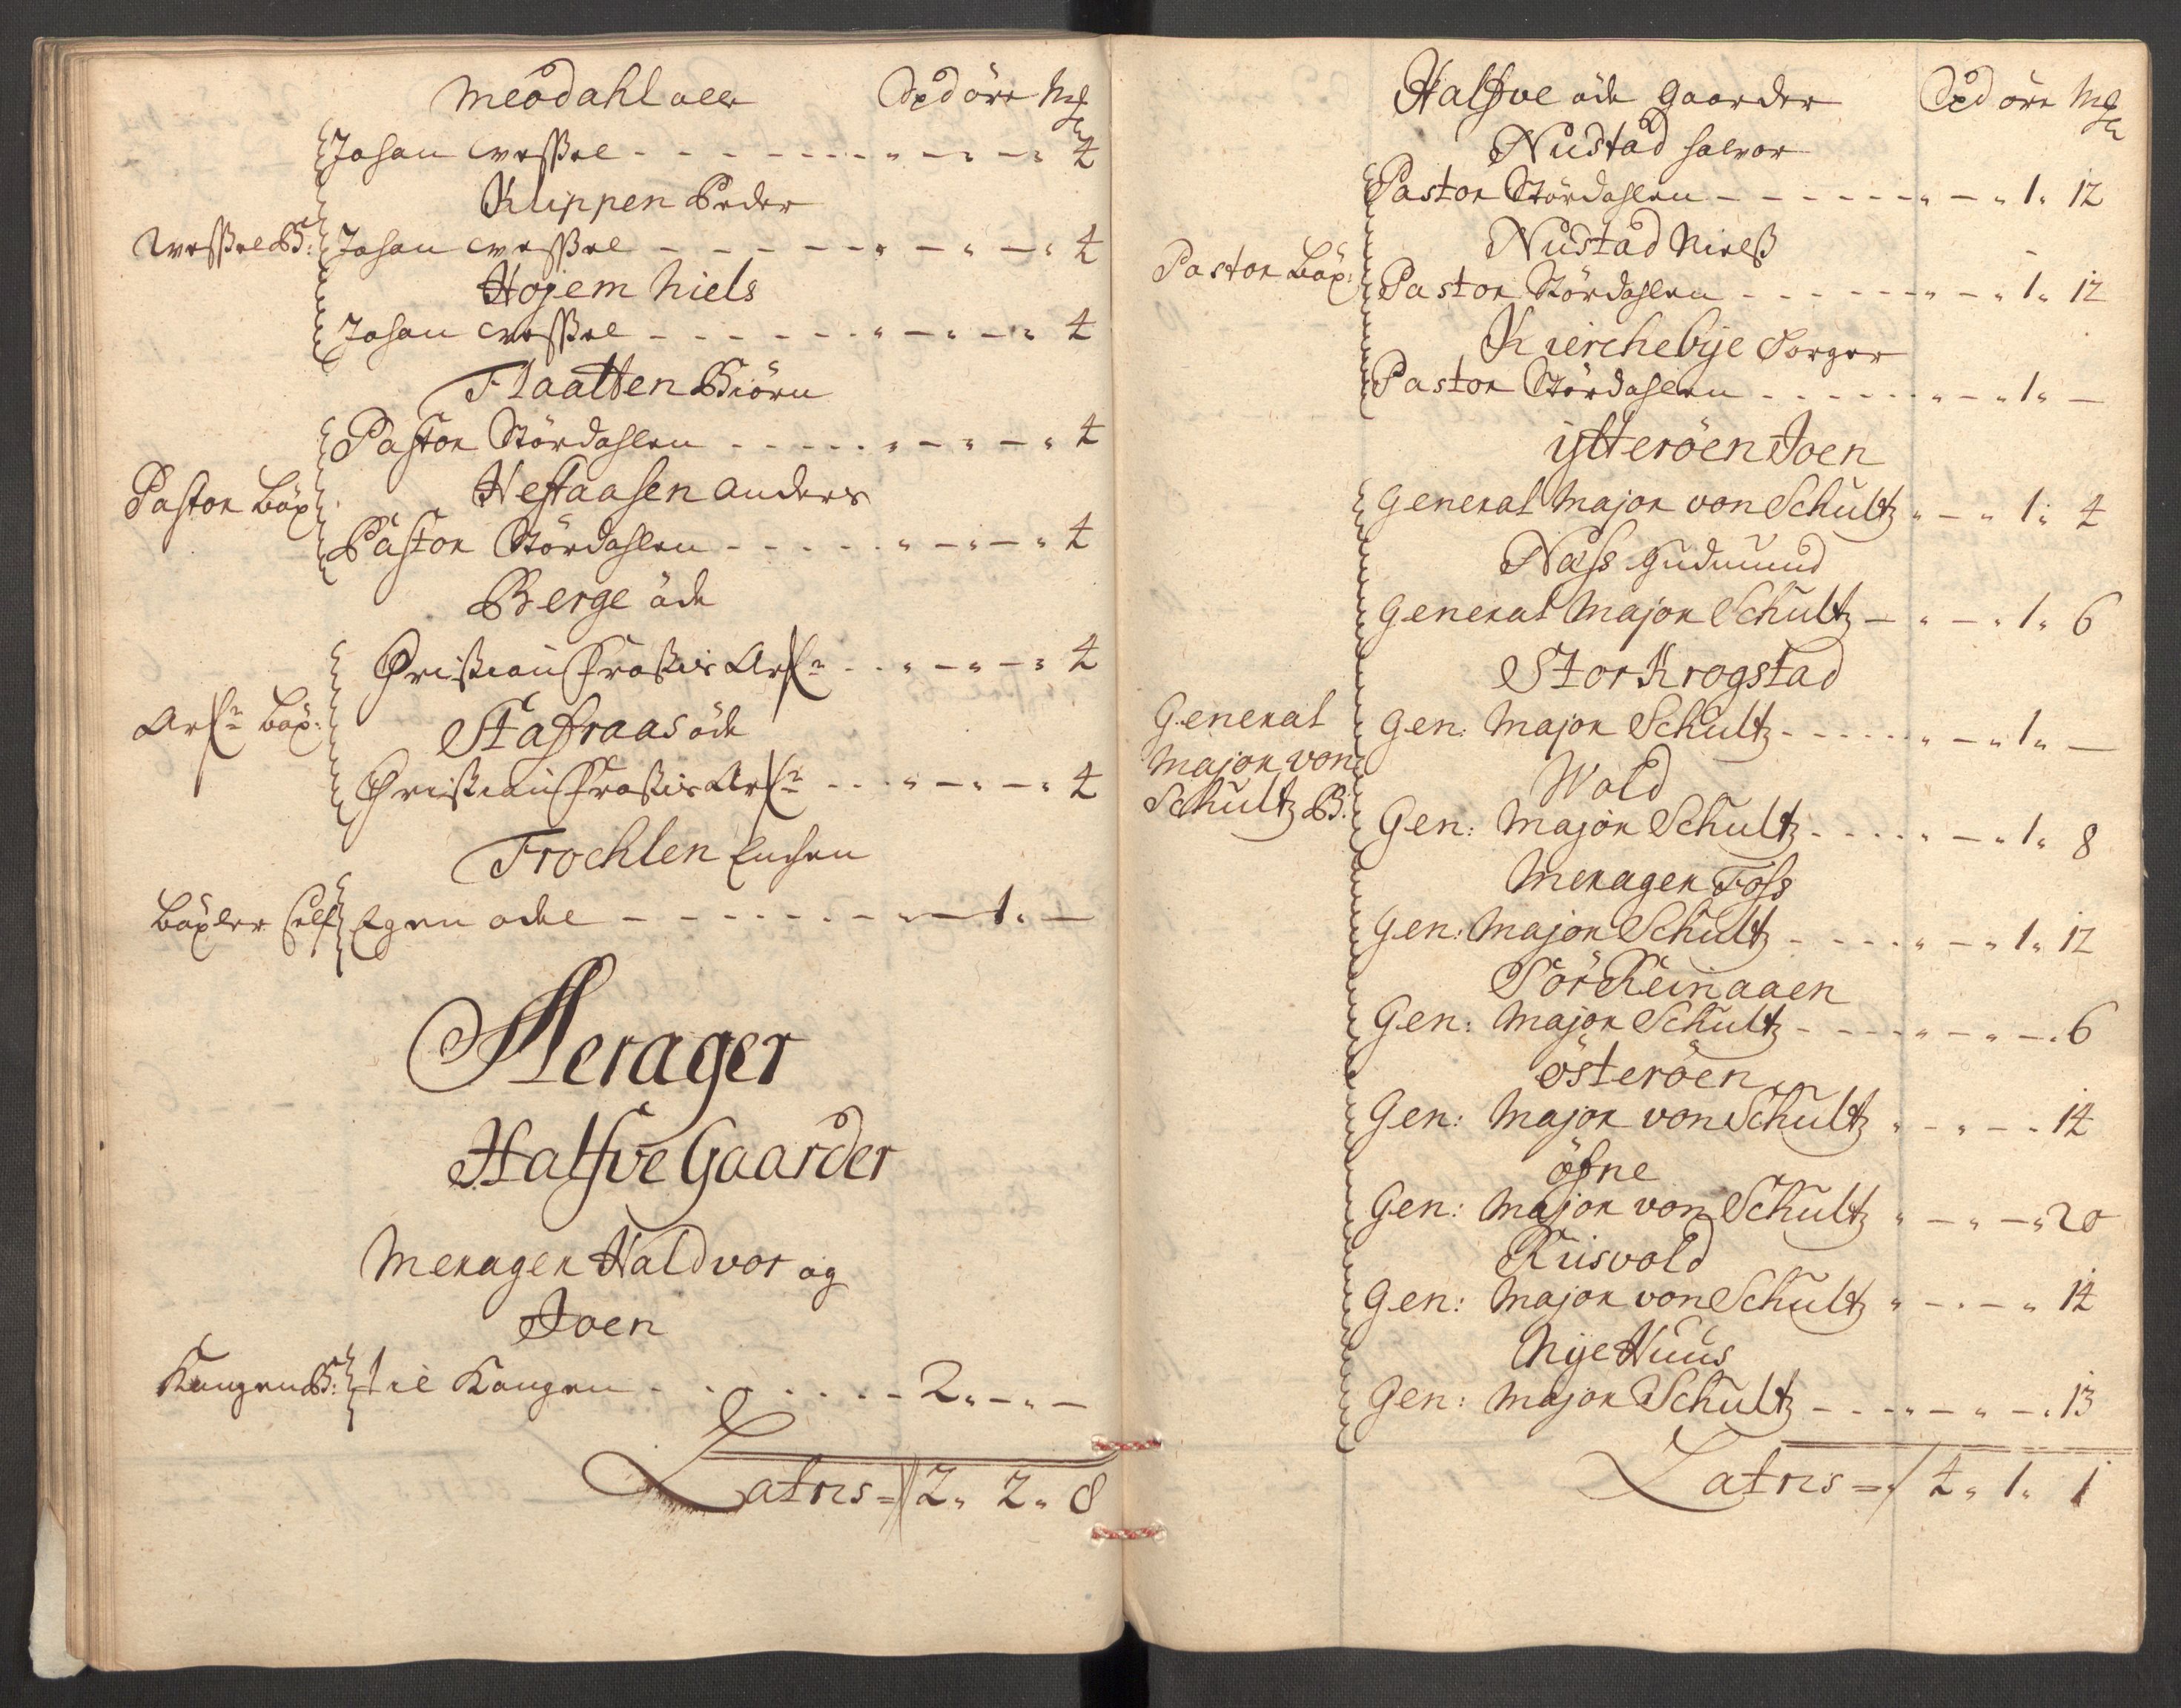 Meodahl ole Spd öre Mk
Johan Wessel - - - - - 4
Klippen Peder
Wessel B: Johan Wessel - - - - - 4
Hojem Niels
Johan Wessel - - - - - 4
Flaatten Biörn
Pastor Stördahlen - - - - - 4
Pastor Böx
Hestaasen Anders
Pastor Stördahlen - - - - - 4
Berge öde
Christian Frostis Arf: - - - 4
Arf: Böx:
Stafraas öde
Christian Frostis Arf: - - - 4
Trochlen Enchen
Böxler Self Egen odel - - - - - 1 " -
Merager
Halfve Gaarder
Merager Haldvor og
Joen
Kongen B: til Kongen - - - - - 2 " - " -
Latris = 2 " 2 " 8
Halfve öde Gaarder Spd öre Mk
Nustad halvor
Pastor Stördahlen - - - - - " 1 " 12
Nustad Nielß
Pastor Böx: Pastor Stördahlen - - - - - " 1 " 12
Kierchebye Torger
Pastor Stördahlen - - - - - " 1 " -
ytteröen Joen
General Major von Schultz " - " 1 " 4
Næss Gudmund
General Major Schultz - " - " 1 " 6
Stor Krogstad
General
Major von
Schultz B:
Gen: Major Schultz - - - - - " 1 " -
Wold
Gen: Major Schultz - - - - - " 1 " 8
Merager Foss
Gen: Major Schultz - - - - - " 1 " 12
Sör Keinaaen
Gen: Major Schultz - - - - - " - " 6
österöen
Gen: Major von Schultz " - " - " 14
öfne
Gen: Major von Schultz " - " - " 20
Riisvold
Gen: Major von Schultz " - " - " 14
Nye Huus
Gen: Major Schultz - - - " - " - " 13
Latris = 4 " 1 " 1